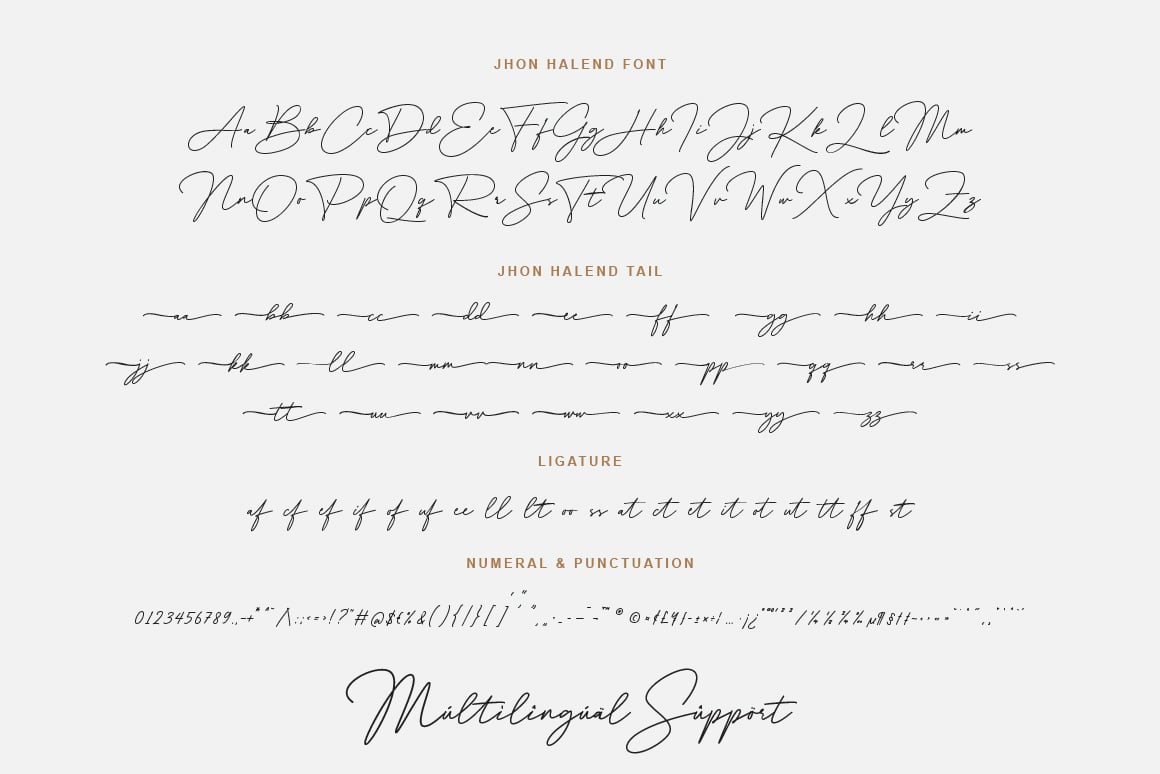 JHON HALEND FONT
Aa Bb Cc Dd Ee Ff Gg Hh Ii Jj Kk Ll Mm
Nn Oo Pp Qq Rr Ss Tt Uu Vv Ww Xx Yy Zz
JHON HALEND TAIL
aa bb cc dd ee ff gg hh ii
jj kk ll mm nn oo pp qq rr ss
tt uu vv ww xx yy zz
LIGATURE
af cf ef if of uf ee ll lt oo ss at ct et it ot ut tt ff st
NUMERAL & PUNCTUATION
0123456789
Múltilingúäl Súppört